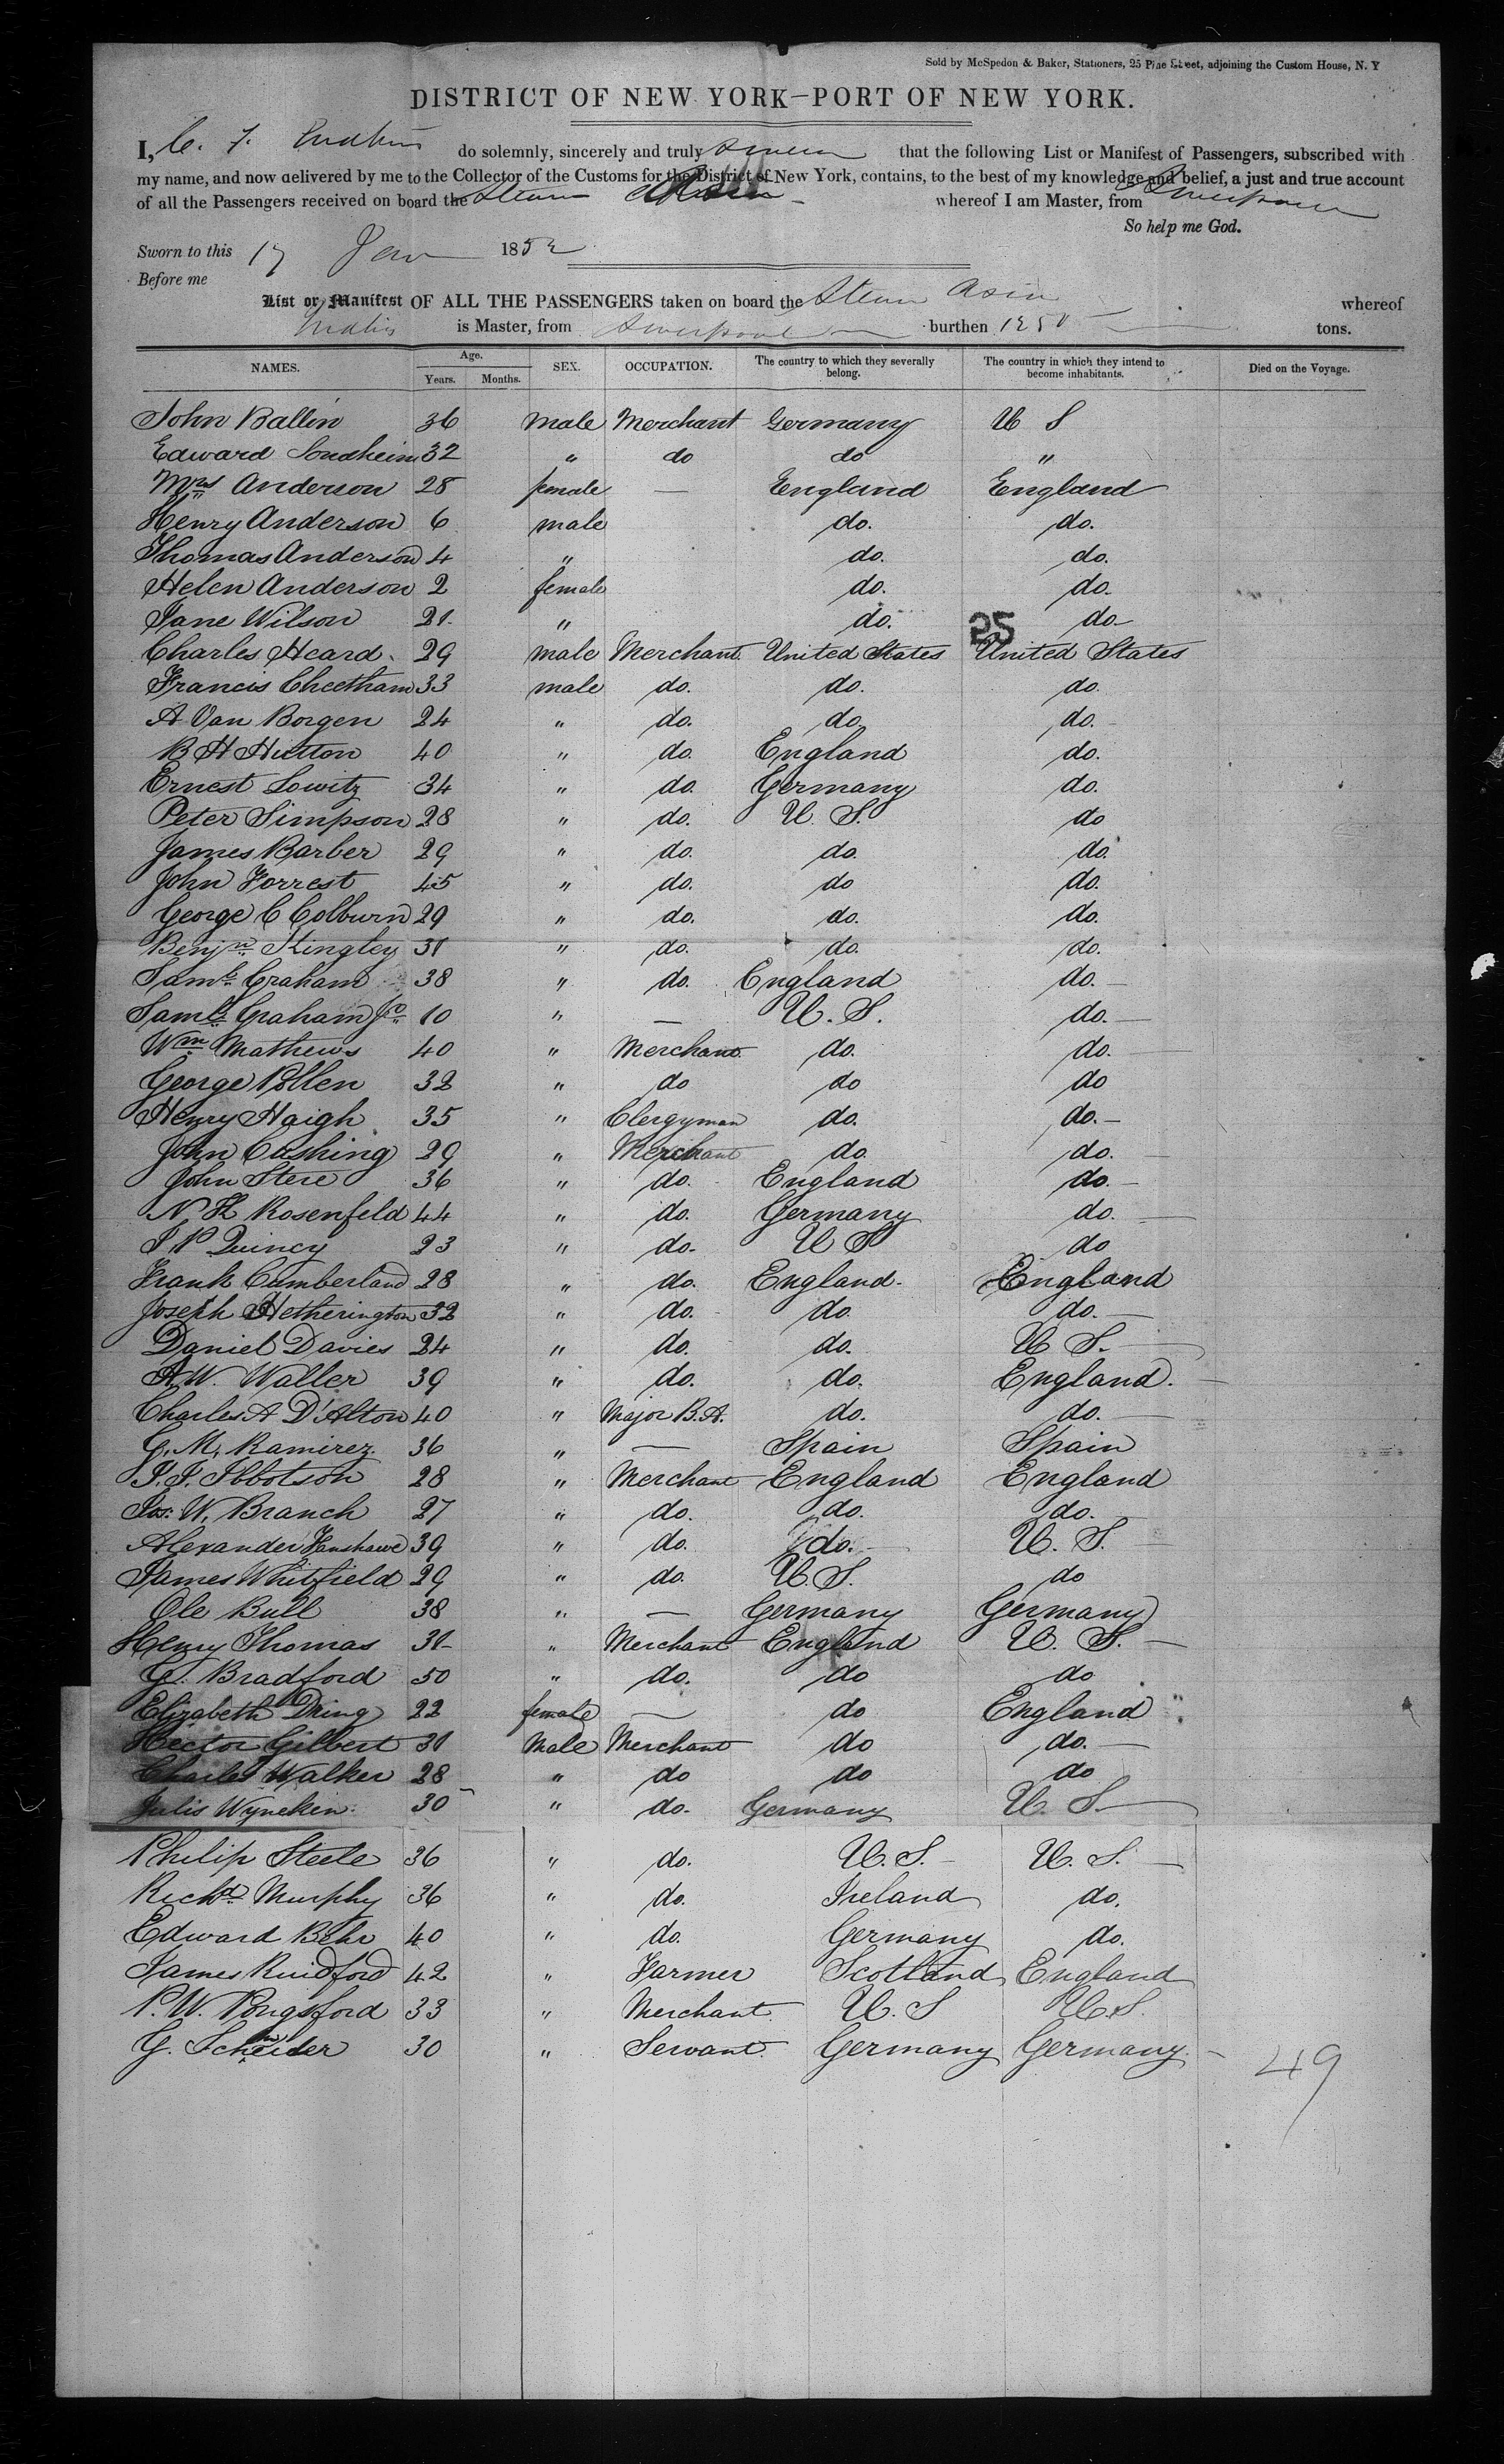 Sold by McSpedon & Baker, Stationers, 25 Pine Street, adjoining the Custom House, N. Y
DISTRICT OF NEW YORK—PORT OF NEW YORK.
I, C. F. do solemnly, sincerely and truly swear that the following List or Manifest of Passengers, subscribed with
my name, and now delivered by me to the Collector of the Customs for the District of New York, contains, to the best of my knowledge and belief, a just and true account
of all the Passengers received on board the Steam Asia whereof I am Master, from Liverpool
So help me God.
Sworn to this 17 Jan 1852
Before me
List or Manifest OF ALL THE PASSENGERS taken on board the Steam Asia whereof
is Master, from Liverpool burthen tons.
NAMES. Age. Years. Months. SEX. OCCUPATION. The country to which they severally belong. The country in which they intend to become inhabitants. Died on the Voyage.
John Ballin 36 male Merchant Germany U S
Edward Sondheim 32 " do do "
Mrs Anderson 28 female — England England
Henry Anderson 6 male do. do.
Thomas Anderson 4 " do. do.
Helen Anderson 2 female do. do.
Jane Wilson 21 " do. do
25
Charles Heard 29 male Merchant United States United States
Francis Cheetham 33 male do. do. do.
A Van Borgen 24 " do. do. do.
B H Hutton 40 " do. England do.
Ernest Lowitz 34 " do. Germany do.
Peter Simpson 28 " do. U. S. do
James Barber 29 " do. do. do.
John Forrest 45 " do. do do.
George C Colburn 29 " do. do. do.
Benjn. Kingley 31 " do. do. do.
Saml. Graham 38 " do. England do.
Saml. Graham Jr 10 " — U. S. do.
Wm Mathews 40 " Merchant do. do.
George Pollen 32 " do do do
Henry Haigh 35 " Clergyman do. do.
John Cushing 29 " Merchant do. do.
John Stere 36 " do. England do.
N H Rosenfeld 44 " do. Germany do.
J P Quincy 23 " do. U S do
Frank Cumberland 28 " do. England England
Joseph Hetherington 32 " do. do. do.
Daniel Davies 24 " do. do. U S.
A. W. Waller 39 " do. do. England.
Charles A D'Alton 40 " Major B.A. do. do.
G. M. Ramirez 36 " — Spain Spain
J. J. Ibbotson 28 " Merchant England England
Jos: W. Branch 27 " do. do. do.
Alexander Fanshawe 39 " do. do. U. S.
James Whitfield 29 " do. U. S. do
Ole Bull 38 " — Germany Germany
Henry Thomas 31 " Merchant England U. S.
G. Bradford 50 " do. do do
Elizabeth Dring 22 female — do England
Hector Gilbert 31 Male Merchant do do.
Charles Walker 28 " do do do
Julis Wyneken 30 " do. Germany U. S.
Philip Steele 36 " do. U. S. U. S.
Richd. Murphy 36 " do. Ireland do.
Edward Behr 40 " do. Germany do.
James 42 " Farmer Scotland England
P. W. Pongsford 33 " Merchant U. S U. S.
G. Scheider 30 " Servant Germany Germany
49